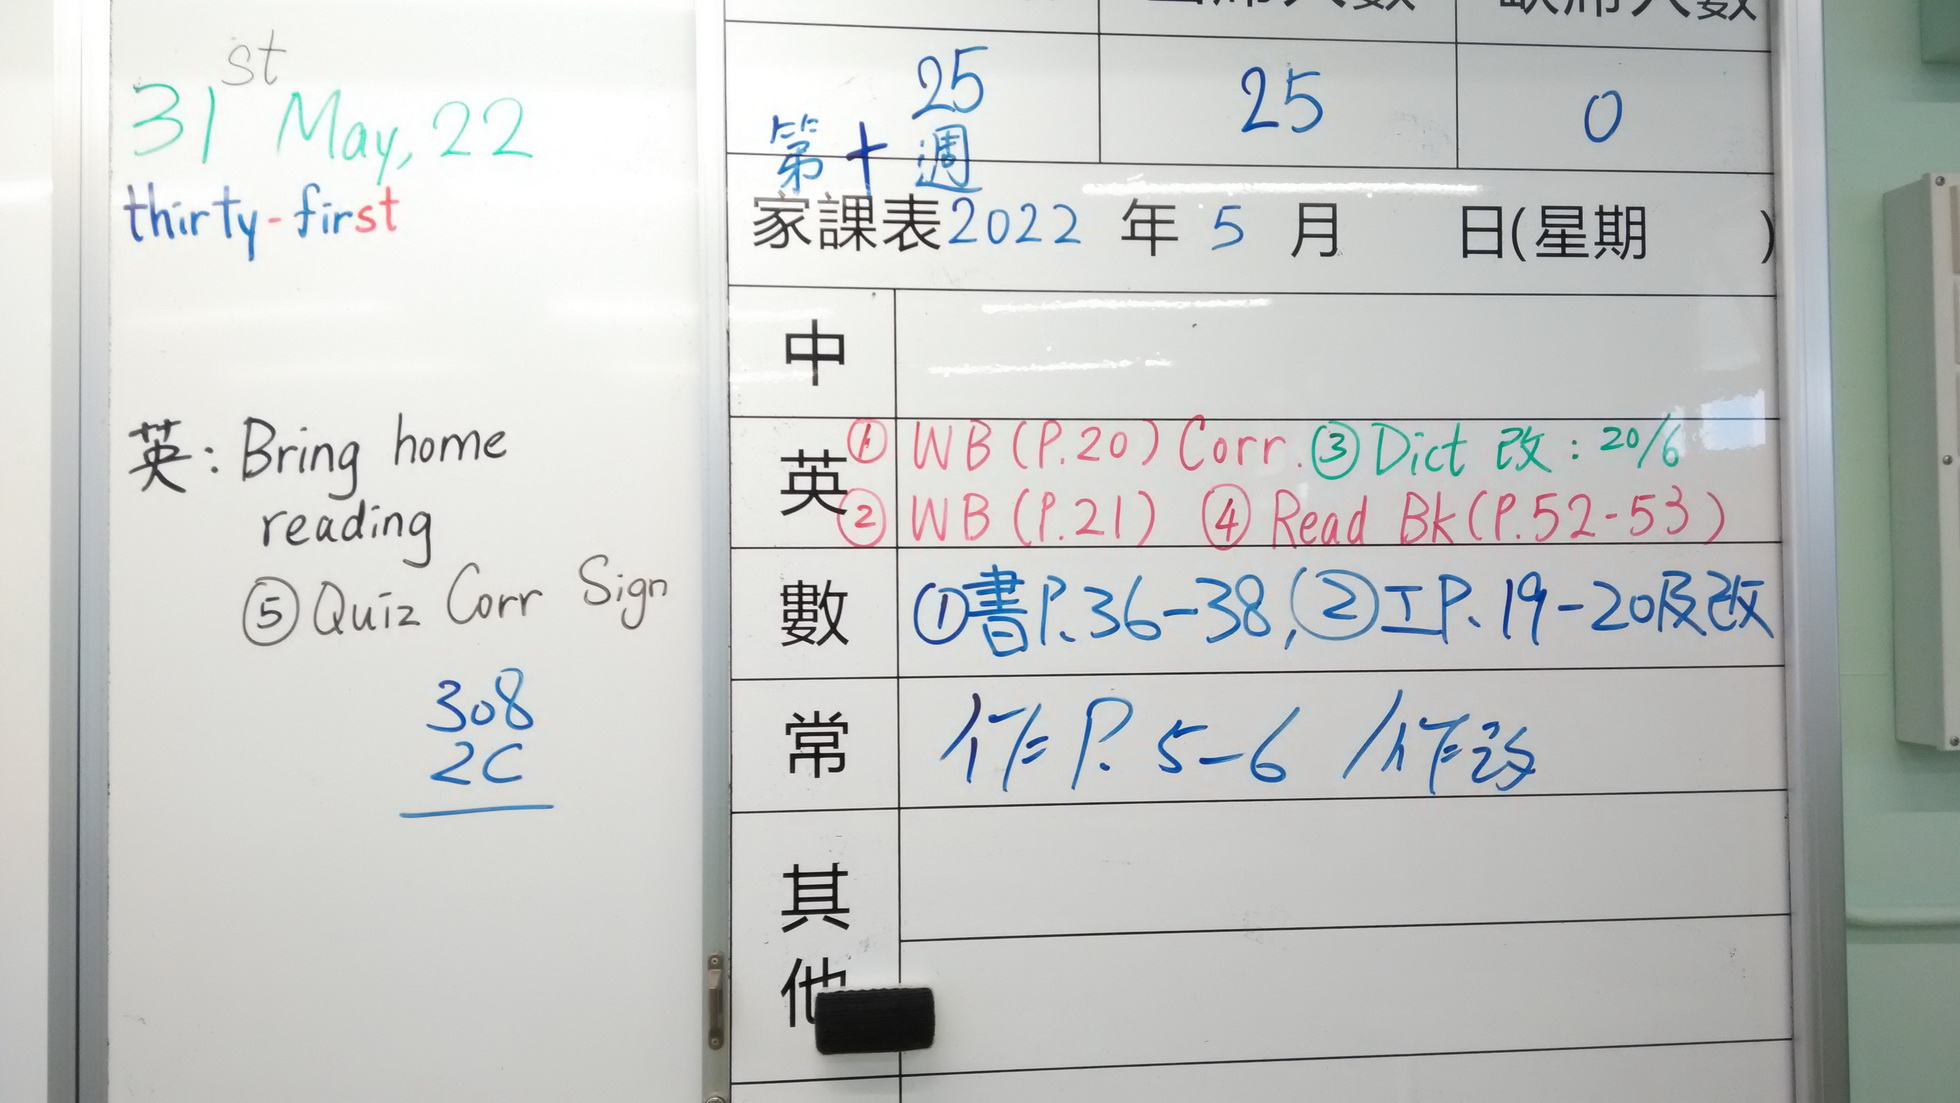 31st May, 22
thirty-first
英: Bring home
reading
⑤ Quiz Corr Sign
308
2C
25 25 0
第十週
家課表 2022 年 5 月 日(星期 )
中
英
① WB (P.20) Corr. ③ Dict 改: 20/6
② WB (P.21) ④ Read Bk (P.52-53)
數 ①書P.36-38, ②工P.19-20及改
常 作 P. 5-6 / 作改
其
他